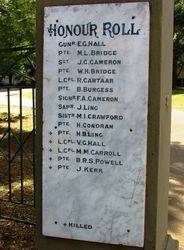 HONOUR ROLL
GUNR E.G. HALL
PTE M.L. BRIDGE
SGT J.C. CAMERON
PTE W.H. BRIDGE
L.CPL R. CARTAAR
PTE B. BURGESS
SIGNR F.A. CAMERON
SAPR J. LING
SISTR M.I. CRAWFORD
+ PTE H. CONDRAN
+ PTE H.B. LING
+ L.CPL V.G. HALL
+ L.CPL M.M. CARROLL
+ PTE B.R.S. POWELL
+ PTE J. KERR
+ KILLED